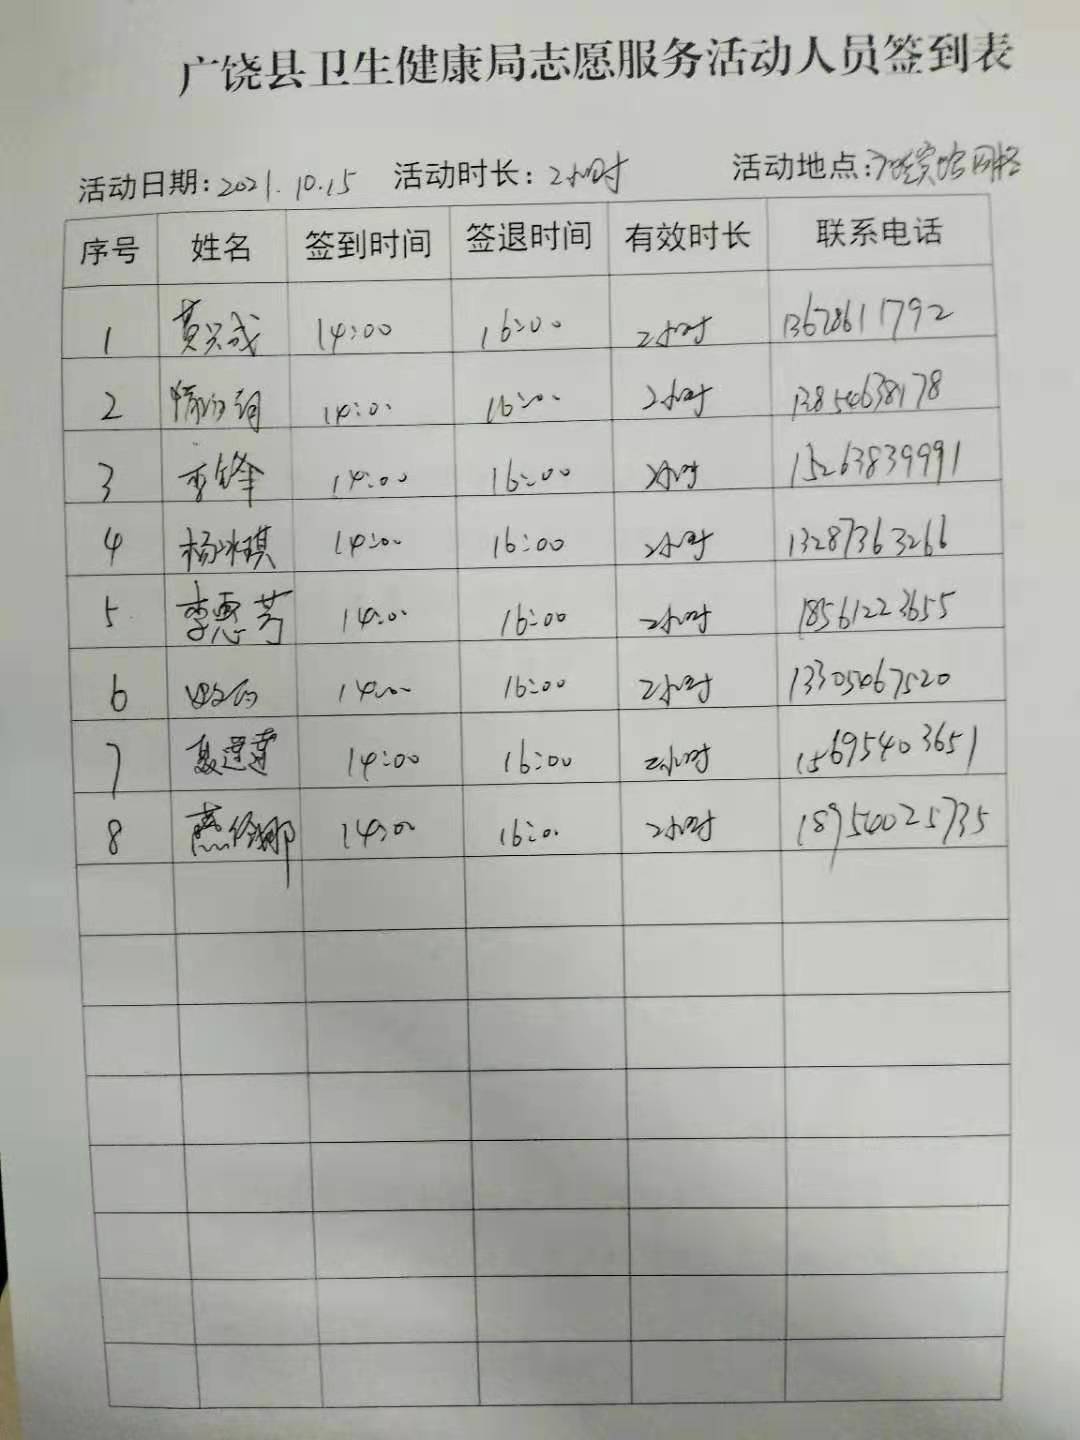 广饶县卫生健康局志愿服务活动人员签到表
活动日期:2021.10.15 活动时长:2小时 活动地点:
序号 姓名 签到时间 签退时间 有效时长 联系电话
1 14:00 16:00 2小时 13678611792
2 14:00 16:00 2小时 13854638178
3 李锋 14:00 16:00 2小时 15263839991
4 杨冰琪 14:00 16:00 2小时 13287363266
5 李惠芳 14:00 16:00 2小时 18561223655
6 14:00 16:00 2小时 13305067520
7 14:00 16:00 2小时 15695403651
8 14:00 16:00 2小时 18954025735